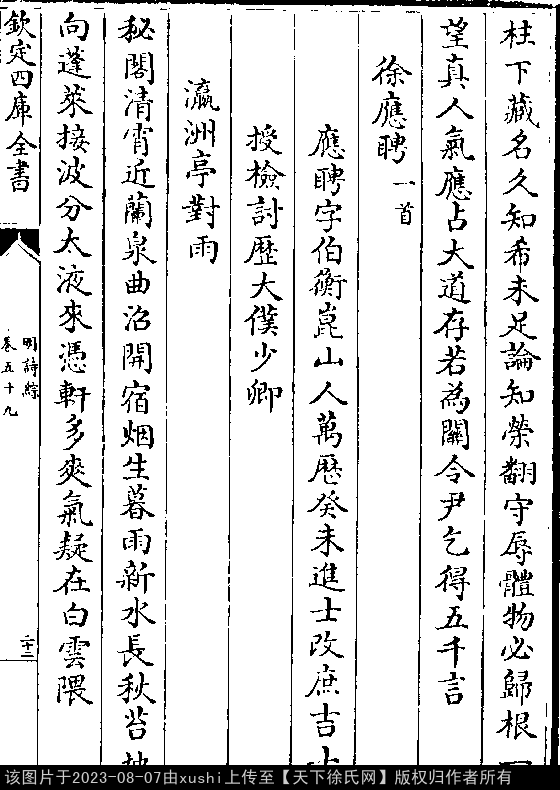 柱下藏名久知希未足論知榮翻守辱體物必歸根
望真人氣應占大道存若為關令尹乞得五千言
徐應聘一首
應聘字伯衡崑山人萬歷癸未進士改庶吉士
授檢討歷太僕少卿
瀛洲亭對雨
秘閣清宵近蘭泉曲沼開宿烟生暮雨新水長秋苔
向蓬萊接波分太液來憑軒多爽氣疑在白雲隈
欽定四庫全書
明詩綜
卷五十九
二十二
该图片于2023-08-07由xushi上传至【天下徐氏网】版权归作者所有